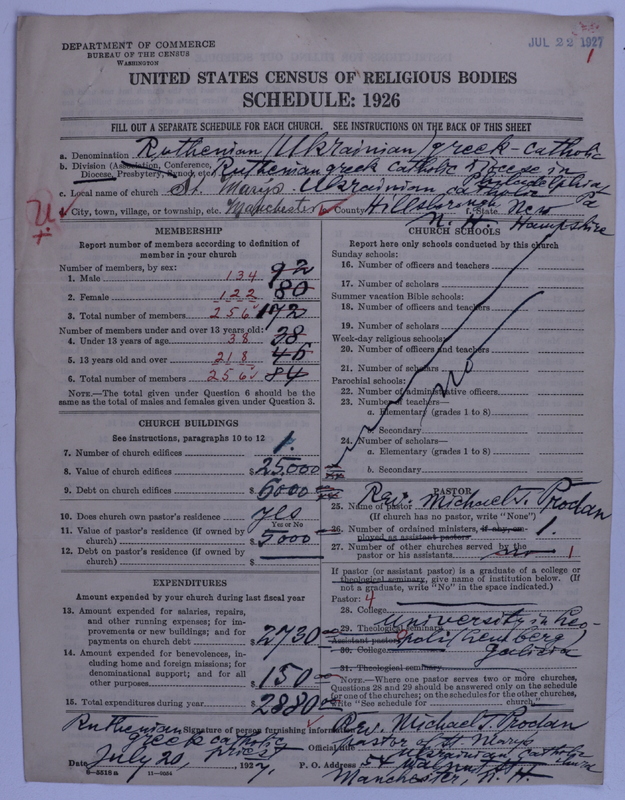 JUL 22 1927
1
DEPARTMENT OF COMMERCE
BUREAU OF THE CENSUS
WASHINGTON
UNITED STATES CENSUS OF RELIGIOUS BODIES
SCHEDULE: 1926
FILL OUT A SEPARATE SCHEDULE FOR EACH CHURCH. SEE INSTRUCTIONS ON THE BACK OF THIS SHEET
a. Denomination Ruthenian (Ukrainian) greek-catholic
b. Division (Association, Conference, Diocese, Presbytery, Synod, etc.) Ruthenian greek catholic Diocese in Philadelphia Pa
c. Local name of church St. Mary's Ukrainian
City, town, village, or township, etc. Manchester County Hillsborough State New Hampshire
N. H.
MEMBERSHIP
Report number of members according to definition of
member in your church
Number of members, by sex:
1. Male 134 92
2. Female 122 80
3. Total number of members 256 172
Number of members under and over 13 years old:
4. Under 13 years of age 38 38
5. 13 years old and over 218 46
6. Total number of members 256 84
NOTE.—The total given under Question 6 should be the
same as the total of males and females given under Question 3.
CHURCH BUILDINGS
See instructions, paragraphs 10 to 12
7. Number of church edifices 1.
8. Value of church edifices $25,000
9. Debt on church edifices $6000
10. Does church own pastor's residence yes
Yes or No
11. Value of pastor's residence (if owned by
church) $5000
12. Debt on pastor's residence (if owned by
church) $
EXPENDITURES
Amount expended by your church during last fiscal year
13. Amount expended for salaries, repairs,
and other running expenses; for im-
provements or new buildings; and for
payments on church debt $2730
14. Amount expended for benevolences, in-
cluding home and foreign missions; for
denominational support; and for all
other purposes $150
15. Total expenditures during year $2880
CHURCH SCHOOLS
Report here only schools conducted by this church
Sunday schools:
16. Number of officers and teachers
17. Number of scholars
Summer vacation Bible schools:
18. Number of officers and teachers
19. Number of scholars
Week-day religious schools:
20. Number of officers and teachers
21. Number of scholars
no
Parochial schools:
22. Number of administrative officers
23. Number of teachers—
a. Elementary (grades 1 to 8)
b. Secondary
24. Number of scholars—
a. Elementary (grades 1 to 8)
b. Secondary
PASTOR
25. Name of pastor Rev. Michael T. Prodan
(If church has no pastor, write "None")
26. Number of ordained ministers, if any, em-
ployed as assistant pastors 1.
27. Number of other churches served by the
pastor or his assistants 1
If pastor (or assistant pastor) is a graduate of a college or
theological seminary, give name of institution below. (If
not a graduate, write "No" in the space indicated.)
Pastor: 4
28. College
29. Theological seminary University in Leo-
Assistant pastor: poli (Lemberg)
30. College Galicia
31. Theological seminary
NOTE.—Where one pastor serves two or more churches,
Questions 28 and 29 should be answered only on the schedule
for one of the churches; on the schedules for the other churches,
write "See schedule for church."
Signature of person furnishing information Rev. Michael T. Prodan
Ruthenian
greek catholic
Official title Pastor of St Marys
Ukrainian Catholic church
Date July 20, 1927.
P. O. Address 54 Walnut St.
Manchester, N. H.
8-5518a 11-9054